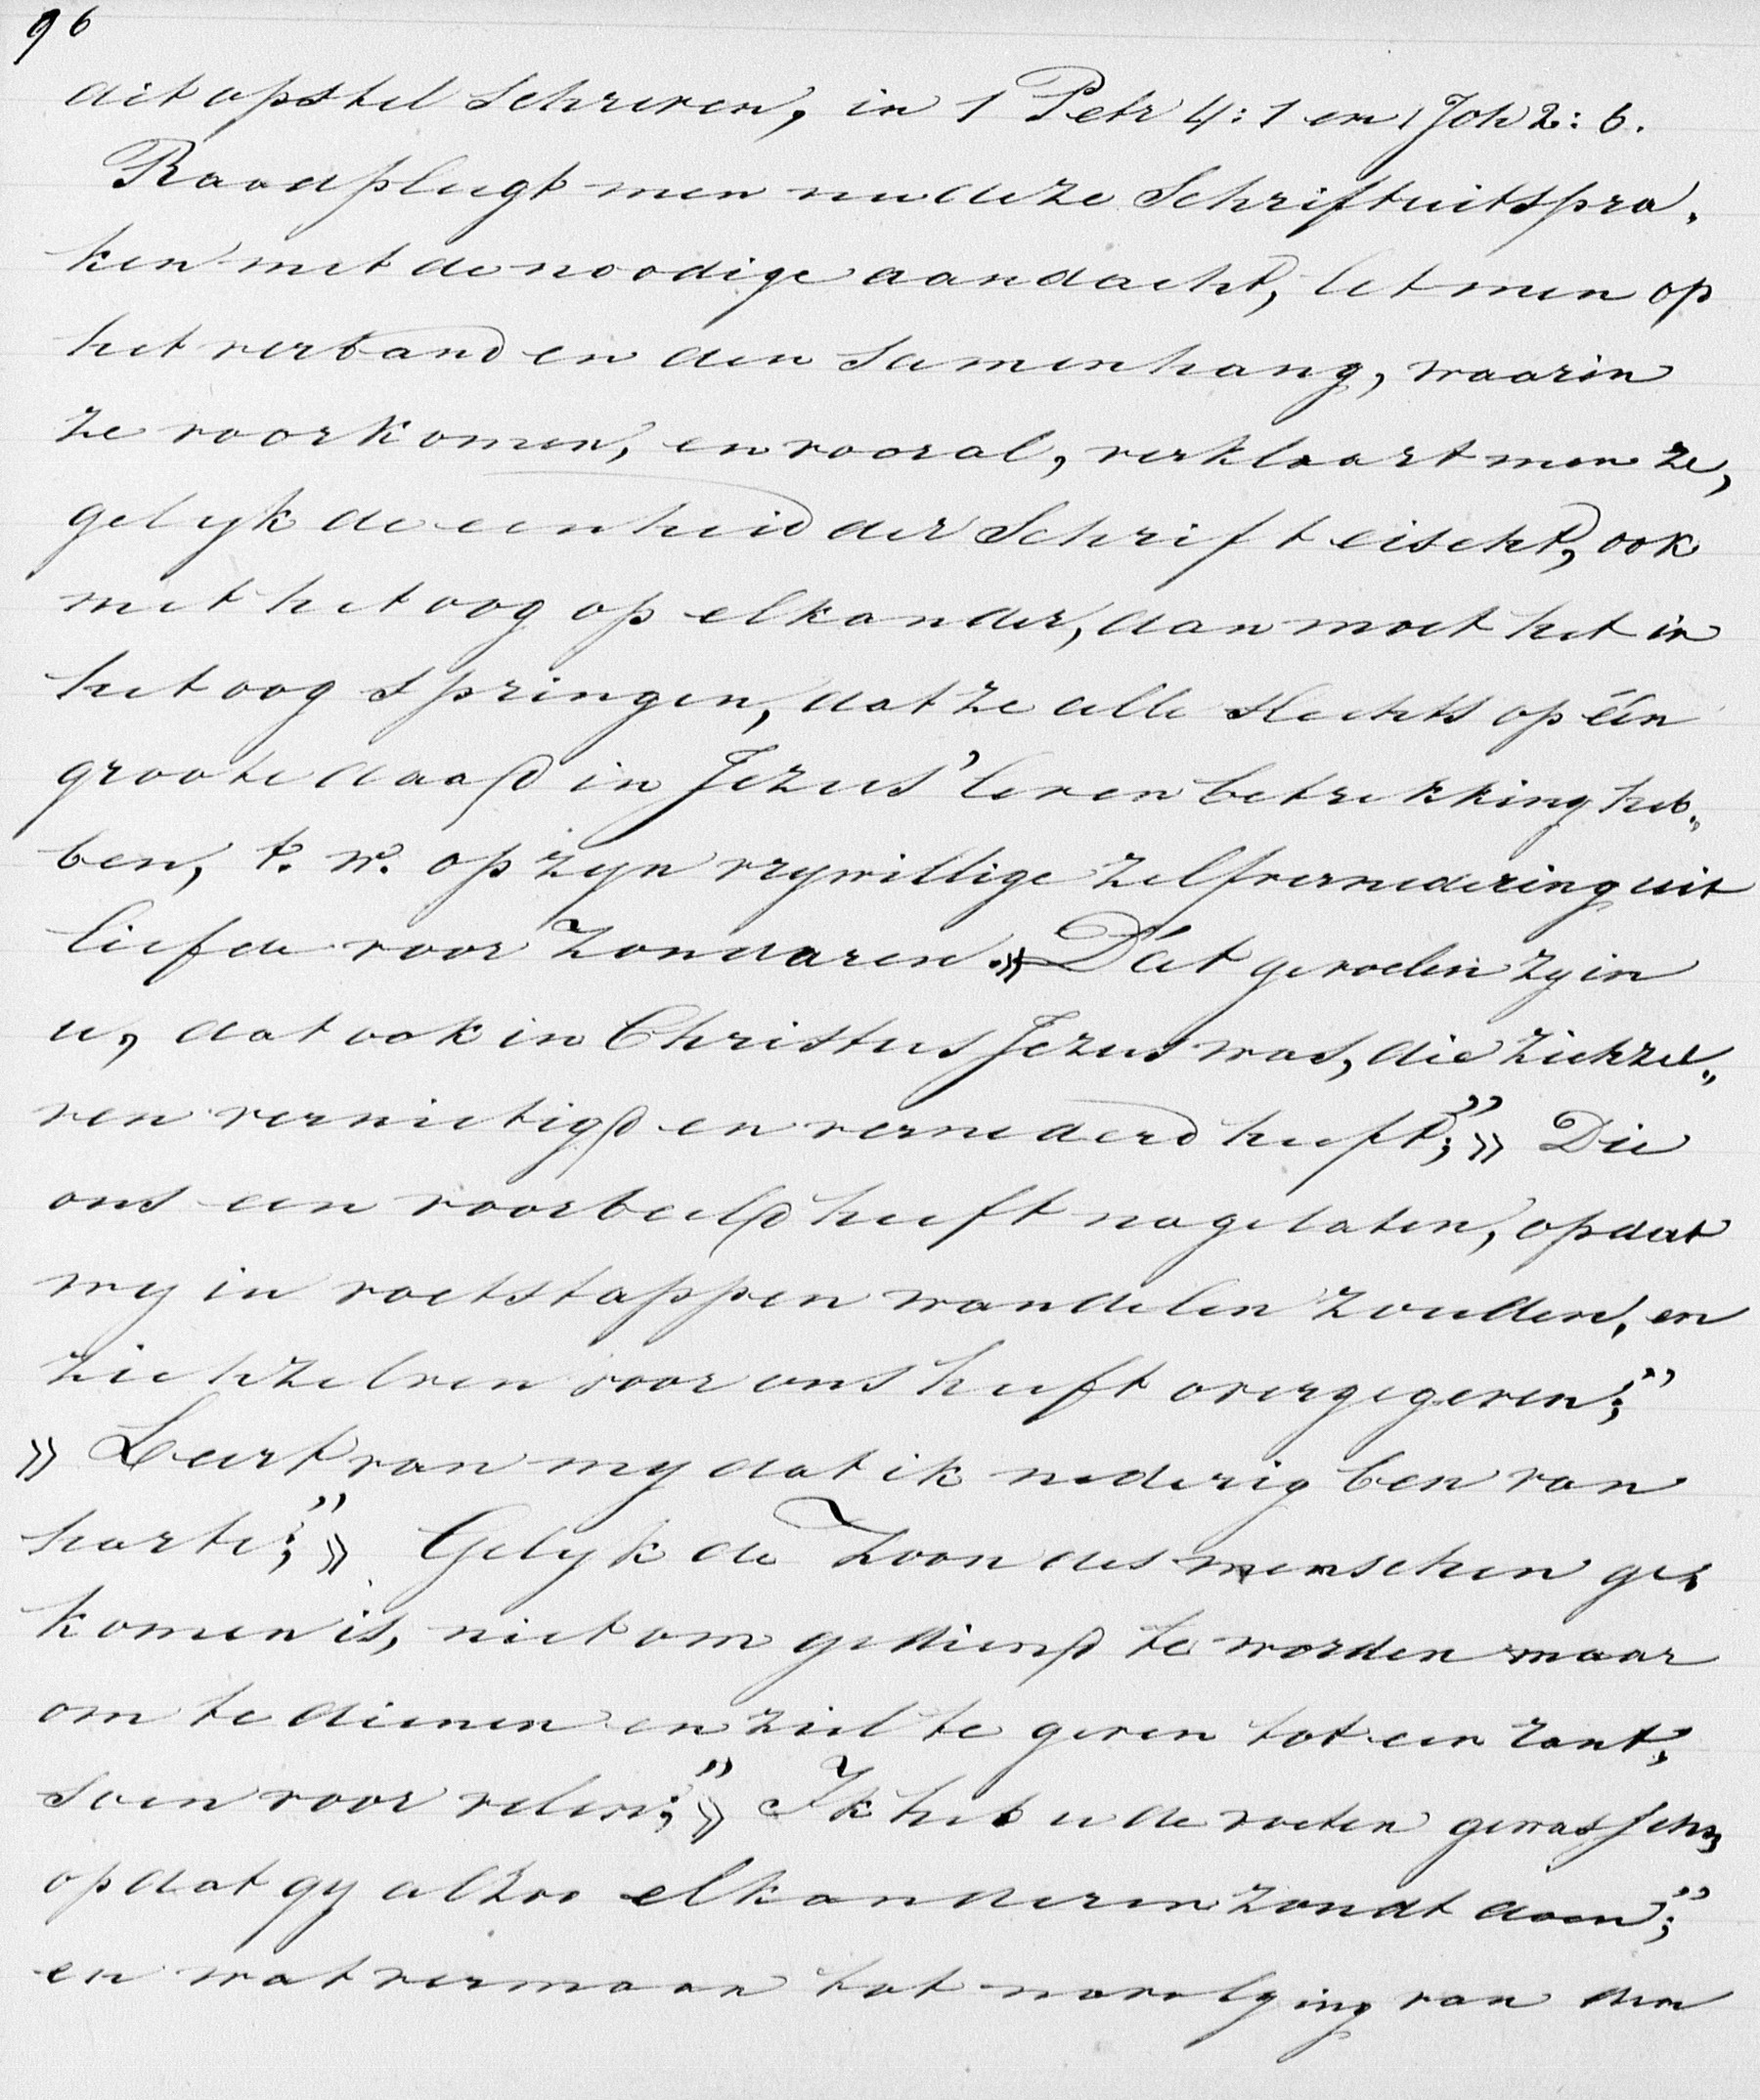 96
dit opstel schreven, in 1 Petr 4:1 en 1 Joh 2:6.
Raadpleegt men nu deze Schriftuitspra„
ken met de noodige aandacht, let men op
het verband en den samenhang, waarin
ze voorkomen, en vooral, verklaart men ze,
gelyk de eenheid der Schrift eischt, ook
met het oog op elkander, dan moet het in
het oog springen, dat ze alle slechts op één
groote daad in Jezus' leven betrekking heb„
ben, t. w. op zyn vrywillige zelfvernedering uit
liefde voor zondaren. » Dát gevoelen zy in
u, dat ook in Christus Jezus was, die zichzel„
ven vernietigd en vernederd heeft;” » Die
ons een voorbeeld heeft nagelaten, opdat
wy in voetstappen wandelen zouden, en
zichzelven voor ons heeft overgegeven;”
» Leert van my dat ik nederig ben van
harte;” » Gelyk de Zoon des menschen ge„
komen is, niet om gediend te worden maar
om te dienen en ziel te geven tot een rant„
soen voor velen;” » Ik heb u de voeten gewasschen,
opdat gy alzoo elkanderen zoudt doen;”
en wat vermaan tot navolging van den